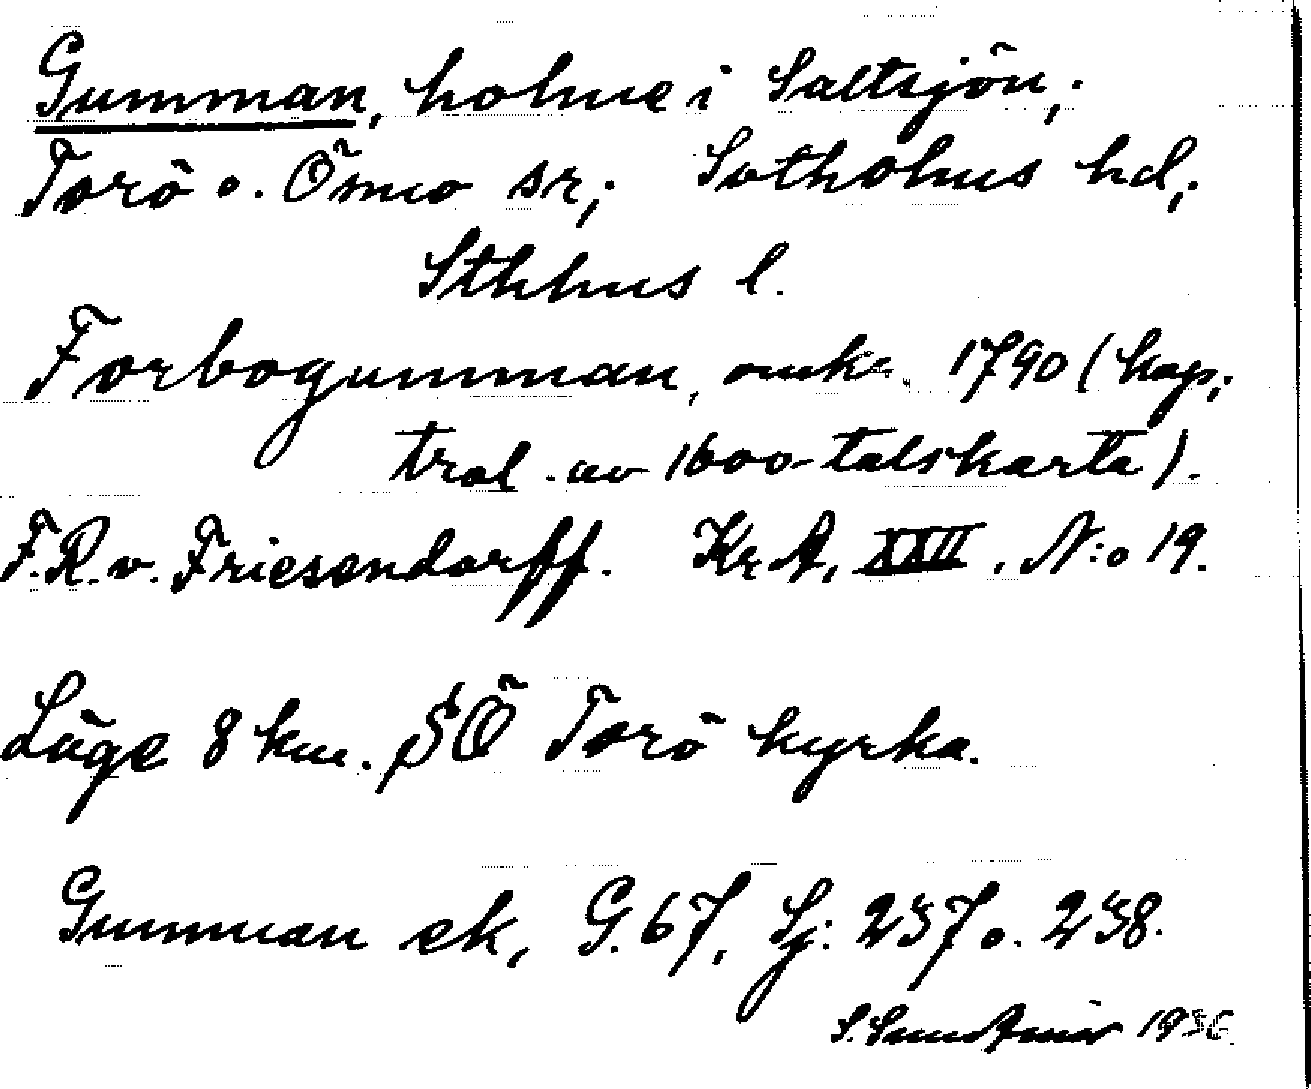 Gumman, holme i Saltsjön,
Torö o. Ösmo sr; Sotholms hd;
Sthlms l.
Forbogumman, omkr. 1790 (kop.
tral. av 1600-talskarta).
F.R.v. Friesendorff. Kr A, XXII. N:o 19.
Läge 8 km. SÖ Torö kyrka.
Gumman ek, G. 67, Sj: 237 o. 238.
S. 1936